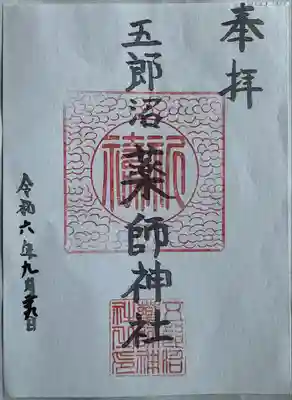 奉拝
五郎沼薬師神社
令和六年九月廿九日